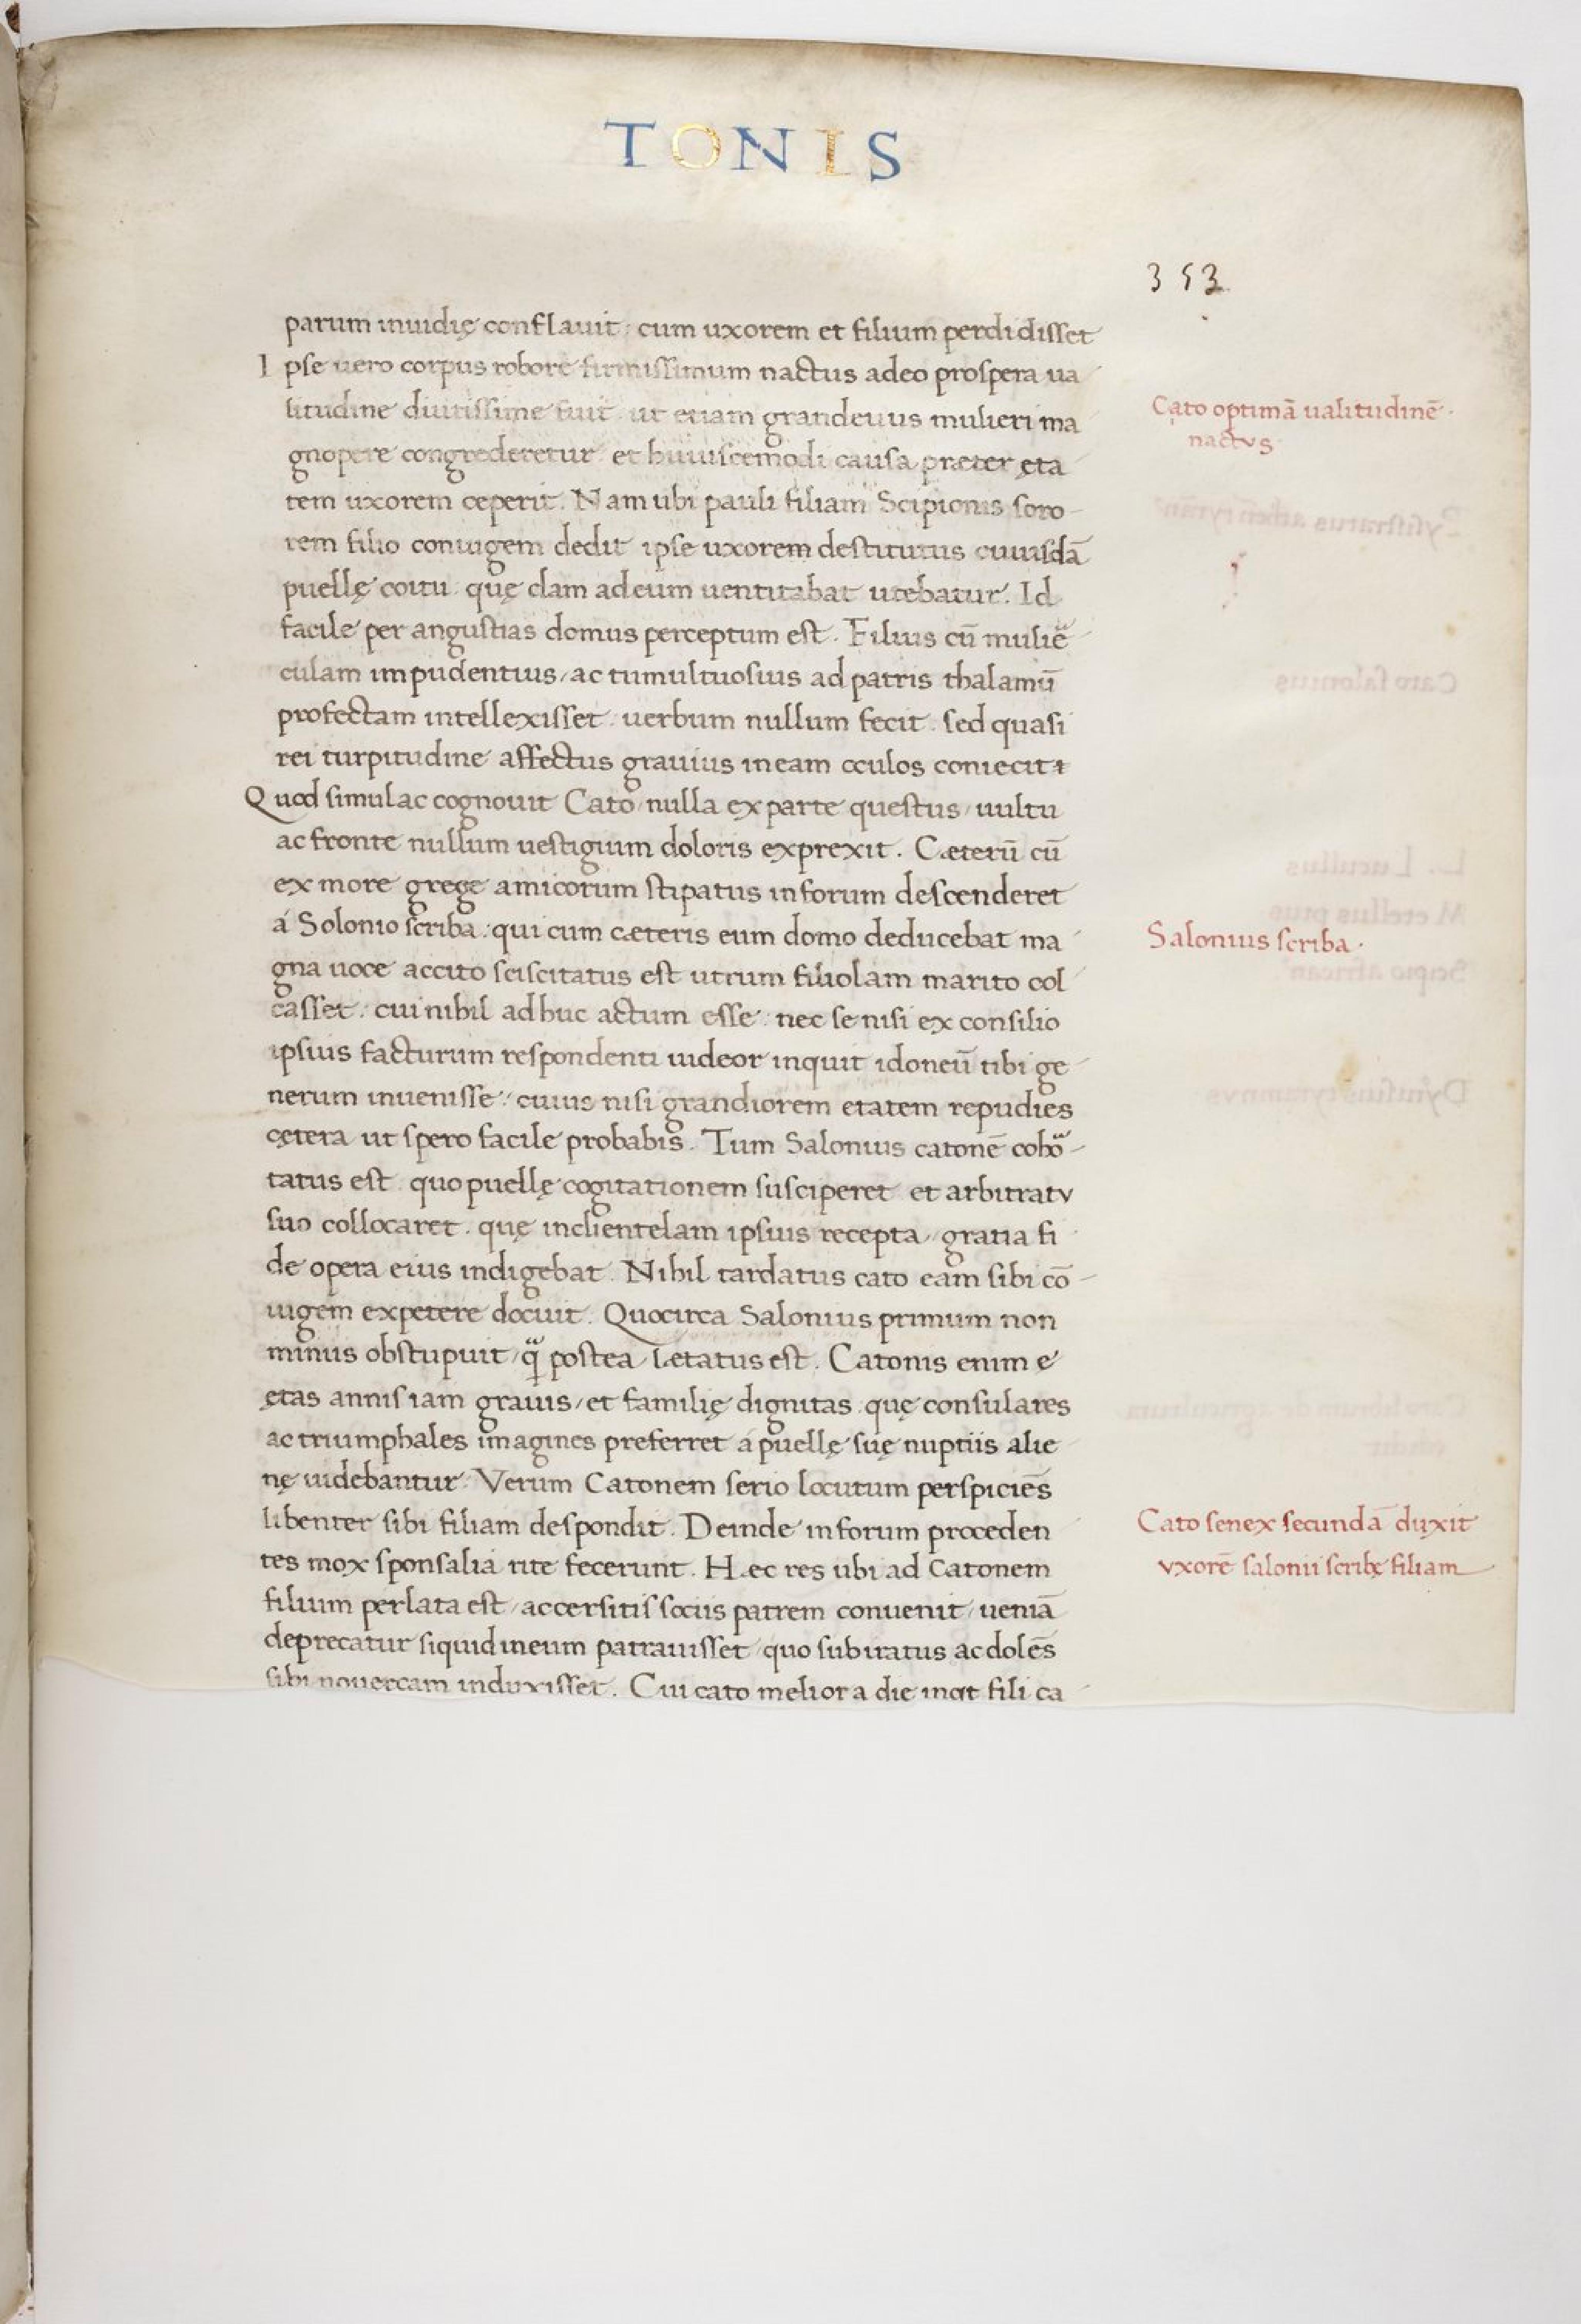 TONIS
353
parum inuidię conflauit: cum uxorem et filium perdidisset
Ipse uero corpus robore firmissimum nactus adeo prospera ua
litudine diutissime fuit ut etiam grandeuus mulieri ma
gnopere congrederetur et huiuscemodi causa præter ęta
tem uxorem ceperit. Nam ubi pauli filiam Scipionis soro
rem filio coniugem dedit ipse uxorem destitutus cuiusdā
puellę coitu quę clam ad eum uentitabat utebatur. Id
facile per angustias domus perceptum est. Filius cū mulie
culam impudentius, ac tumultuosius ad patris thalamū
profectam intellexisset uerbum nullum fecit sed quasi
rei turpitudine affectus grauius in eam oculos coniecit
Quod simul ac cognouit Cato nulla ex parte questus, uultu
ac fronte nullum uestigium doloris exprexit. Cæterū cū
ex more grege amicorum stipatus in forum descenderet
á Solonio scriba: qui cum cæteris eum domo deducebat ma
gna uoce accito sciscitatus est utrum filiolam marito col
casset: cui nihil adhuc actum esse: nec se nisi ex consilio
ipsius facturum respondenti uideor inquit idoneū tibi ge
nerum inuenisse: cuius nisi grandiorem etatem repudies
cętera ut spero facile probabis. Tum Salonius catonē coho
tatus est quo puellę cogitationem susciperet et arbitratv
suo collocaret. quę in clientelam ipsius recepta, gratia fi
de opera eius indigebat. Nihil tardatus cato eam sibi cō
iugem expetere docuit. Quocirca Salonius primum non
minus obstupuit, q̃ postea lætatus est. Catonis enim e
ętas annis iam grauis, et familię dignitas quę consulares
ac triumphales imagines preferret á puellę suę nuptiis alie
nę uidebantur. Verum Catonem serio locutum perspiciēs
libenter sibi filiam despondit. Deinde in forum proceden
tes mox sponsalia rite fecerunt. Hæc res ubi ad Catonem
filium perlata est, accersitis sociis patrem conuenit, ueniā
deprecatur siquid ineum patrauisset quo subiratus ac dolēs
sibi nouercam induxisset. Cui cato meliora die inqt fili ca
Cato optimā ualitudinē
nactvs
Salonius scriba.
Cato senex secundā duxit
vxorē salonii scribę filiam